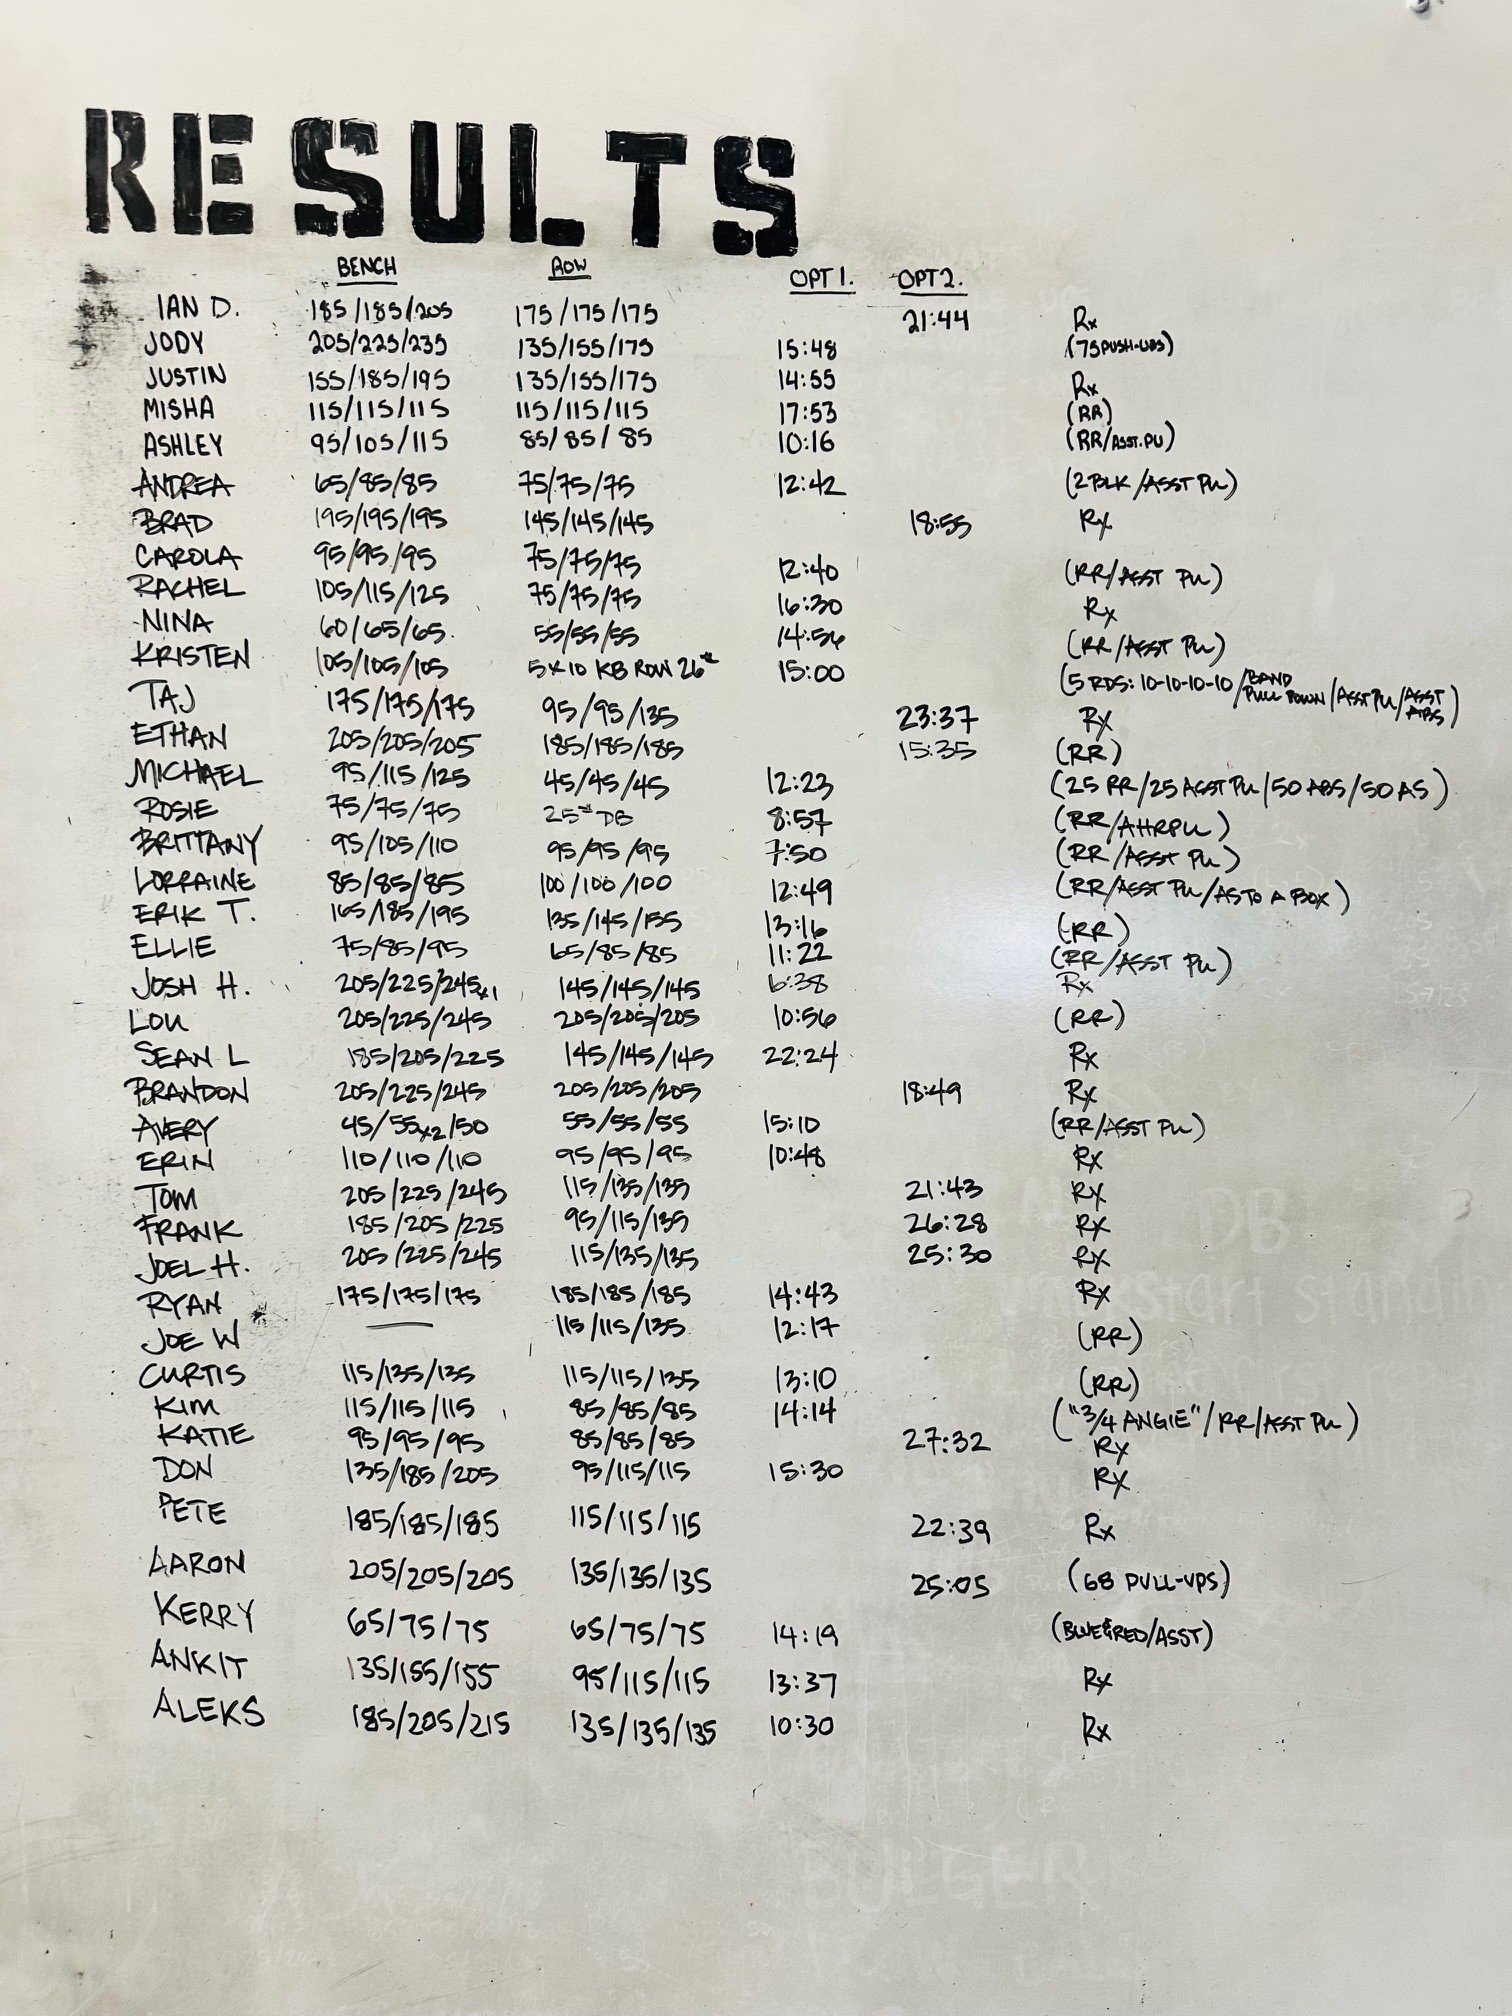 RESULTS
BENCH ROW OPT 1. OPT 2.
IAN D. 185/185/205 175/175/175 21:44 Rx
JODY 205/225/235 135/155/175 15:48 (75 PUSH-UPS)
JUSTIN 155/185/195 135/155/175 14:55 Rx
MISHA 115/115/115 115/115/115 17:53 (RR)
ASHLEY 95/105/115 85/85/85 10:16 (RR/ASST. PU)
ANDREA 65/85/85 75/75/75 12:42 (2 BLK/ASST PU)
BRAD 195/195/195 145/145/145 18:55 Rx
CAROLA 95/95/95 75/75/75 12:40 (RR/ASST PU)
RACHEL 105/115/125 75/75/75 16:30 Rx
NINA 60/65/65 55/55/55 14:56 (RR/ASST PU)
KRISTEN 105/105/105 5x10 KB ROW 26# 15:00 (5 RDS: 10-10-10-10/BAND PULL DOWN/ASST PU/ASST ABS)
TAJ 175/175/175 95/95/135 23:37 Rx
ETHAN 205/205/205 185/185/185 15:35 (RR)
MICHAEL 95/115/125 45/45/45 12:23 (25 RR/25 ASST PU/50 ABS/50 AS)
ROSIE 75/75/75 25# DB 8:57 (RR/AHRPU)
BRITTANY 95/105/110 95/95/95 7:50 (RR/ASST PU)
LORRAINE 85/85/85 100/100/100 12:49 (RR/ASST PU/AS TO A BOX)
ERIK T. 165/185/195 135/145/155 13:16 (RR)
ELLIE 75/85/95 65/85/85 11:22 (RR/ASST PU)
JOSH H. 205/225/245x1 145/145/145 6:38 Rx
LOU 205/225/245 205/205/205 10:56 (RR)
SEAN L 185/205/225 145/145/145 22:24 Rx
BRANDON 205/225/245 205/205/205 18:49 Rx
AVERY 45/55x2/50 55/55/55 15:10 (RR/ASST PU)
ERIN 110/110/110 95/95/95 10:48 Rx
TOM 205/225/245 115/135/135 21:43 Rx
FRANK 185/205/225 95/115/135 26:28 Rx
JOEL H. 205/225/245 115/135/135 25:30 Rx
RYAN 175/175/175 185/185/185 14:43 Rx
JOE W — 115/115/135 12:17 (RR)
CURTIS 115/135/135 115/115/135 13:10 (RR)
KIM 115/115/115 85/85/85 14:14 ("3/4 ANGIE"/RR/ASST PU)
KATIE 95/95/95 85/85/85 27:32 Rx
DON 135/185/205 95/115/115 15:30 Rx
PETE 185/185/185 115/115/115 22:39 Rx
AARON 205/205/205 135/135/135 25:05 (68 PULL-UPS)
KERRY 65/75/75 65/75/75 14:19 (BLUE&RED/ASST)
ANKIT 135/155/155 95/115/115 13:37 Rx
ALEKS 185/205/215 135/135/135 10:30 Rx